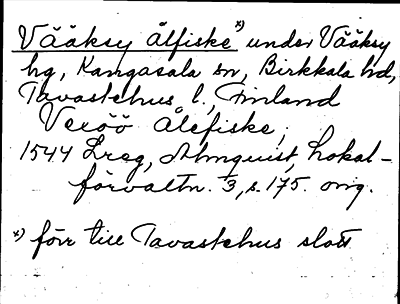 Vääksy ålfiske *) under Vääksy
hg, Kangasala sn, Birkkala hd,
Tavastehus l., Finland
Vexöö Ålefiske,
1544 Lreg, Almquist, Lokal-
förvaltn. 3, s. 175. orig.
*) förr till Tavastehus slott